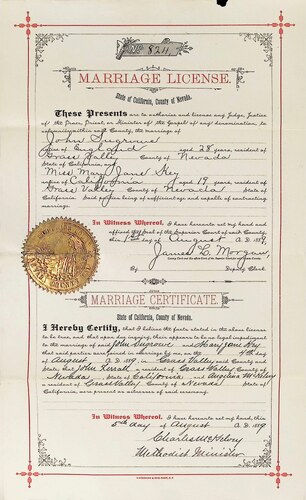 824
MARRIAGE LICENSE.
State of California, County of Nevada.
These Presents are to authorize and license any Judge, Justice
of the Peace, Priest, or Minister of the Gospel of any denomination, to
solemnize within said County, the marriage of
John
native of England aged 28 years, resident of
Grass Valley County of Nevada
State of California, and
Miss Mary Jane Key
native of California aged 19 years, resident of
Grass Valley County of Nevada State of
California. Said parties being of sufficient age and capable of contracting
marriage.
In Witness Whereof, I have hereunto set my hand and
affixed the seal of the Superior Court of said County,
this day of August A.D. 1889.
James L. Morgan,
By Deputy Clerk
MARRIAGE CERTIFICATE.
State of California, County of Nevada.
I Hereby Certify, that I believe the facts stated in the above license
to be true, and that upon due inquiry, there appears to be no legal impediment
to the marriage of said John and Mary Jane Key
that said parties were joined in marriage by me on the 4th day of
August A.D. 1889, in Grass Valley said County and
State; that John a resident of Grass Valley County of
Nevada, State of California, and Angelina
a resident of Grass Valley County of Nevada State of
California, were present as witnesses of said ceremony.
In Witness Whereof, I have hereunto set my hand, this
5th day of August A.D. 1889
Charles
Methodist Minister